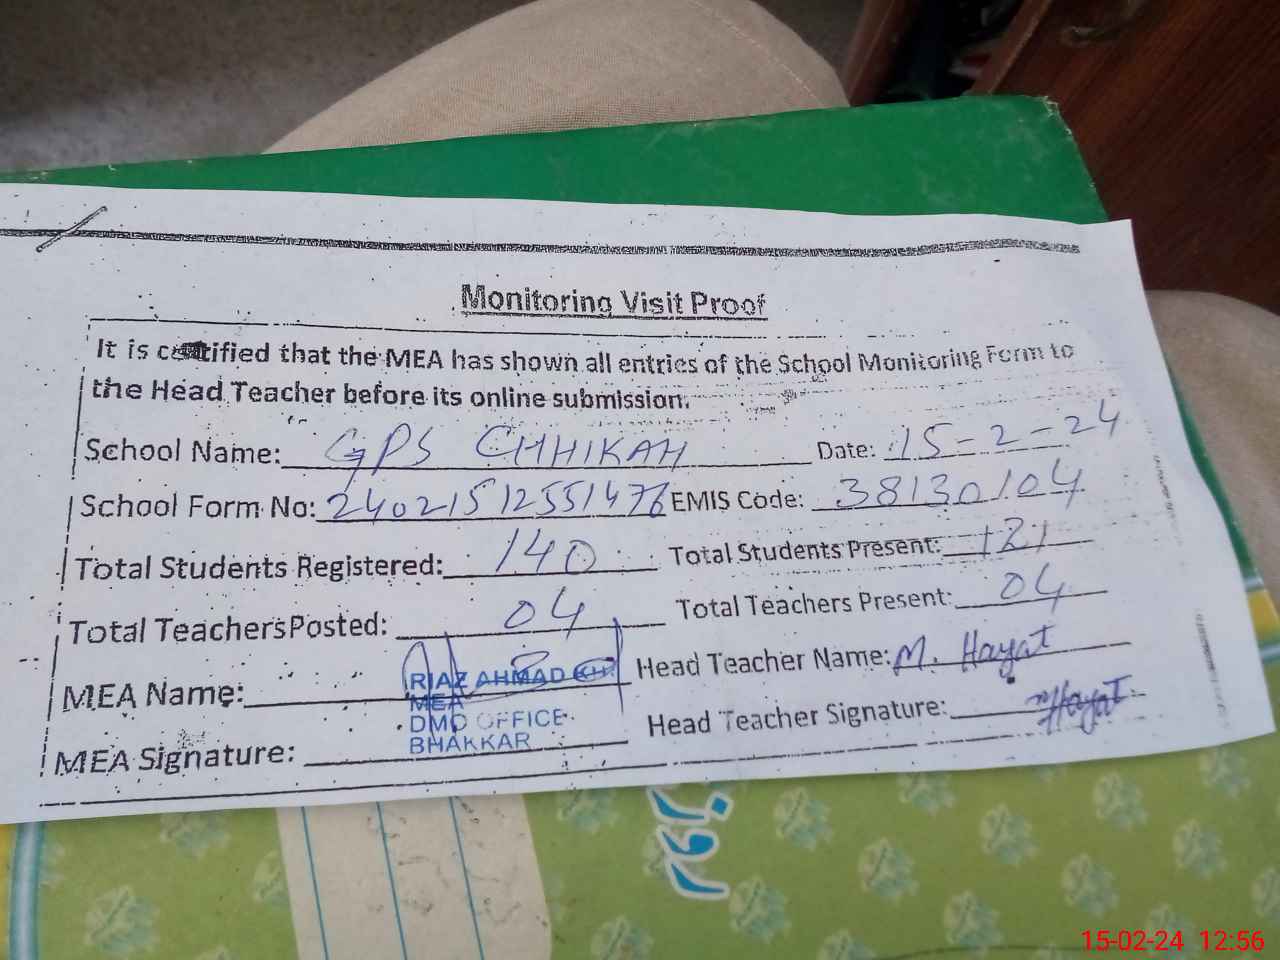 Monitoring Visit Proof
It is certified that the MEA has shown all entries of the School Monitoring Form to
the Head Teacher before its online submission.
School Name: GPS CHHIKAH Date: 15-2-24
School Form No: 24021512551476 EMIS Code: 38130104
Total Students Registered: 140 Total Students Present: 121
Total Teachers Posted: 04 Total Teachers Present: 04
MEA Name: RIAZ AHMAD KH. Head Teacher Name: M. Hayat
MEA
DMO OFFICE
BHAKKAR
MEA Signature: Head Teacher Signature: MHayat
روز
15-02-24 12:56